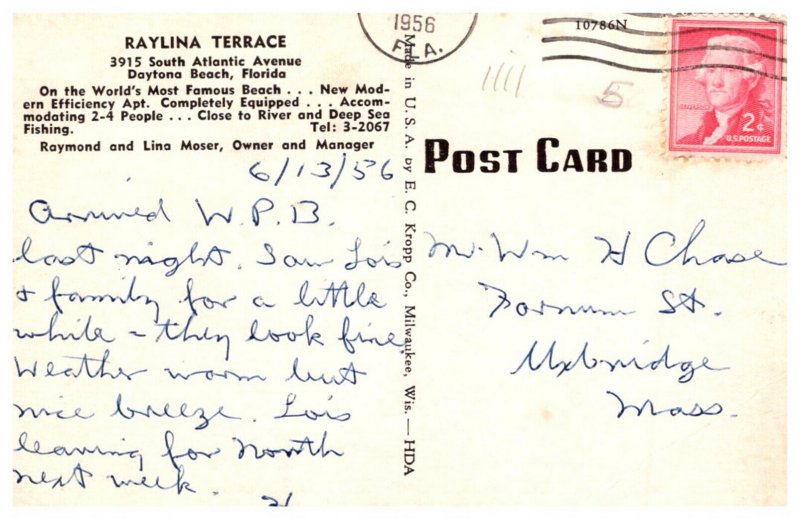 RAYLINA TERRACE
3915 South Atlantic Avenue
Daytona Beach, Florida
On the World's Most Famous Beach . . . New Mod-
ern Efficiency Apt. Completely Equipped . . . Accom-
modating 2-4 People . . . Close to River and Deep Sea
Fishing. Tel: 3-2067
Raymond and Lina Moser, Owner and Manager
6/13/56
Arrived W.P.B.
last night. Saw Lois
& family for a little
while - they look fine
Weather warm but
nice breeze. Lois
leaving for North
next week.
H
Made in U.S.A. by E. C. Kropp Co., Milwaukee, Wis. — HDA
1956
FLA.
10786N
5
2¢
U.S. POSTAGE
POST CARD
Mr. Wm H Chase
Farnum St.
Uxbridge
Mass.